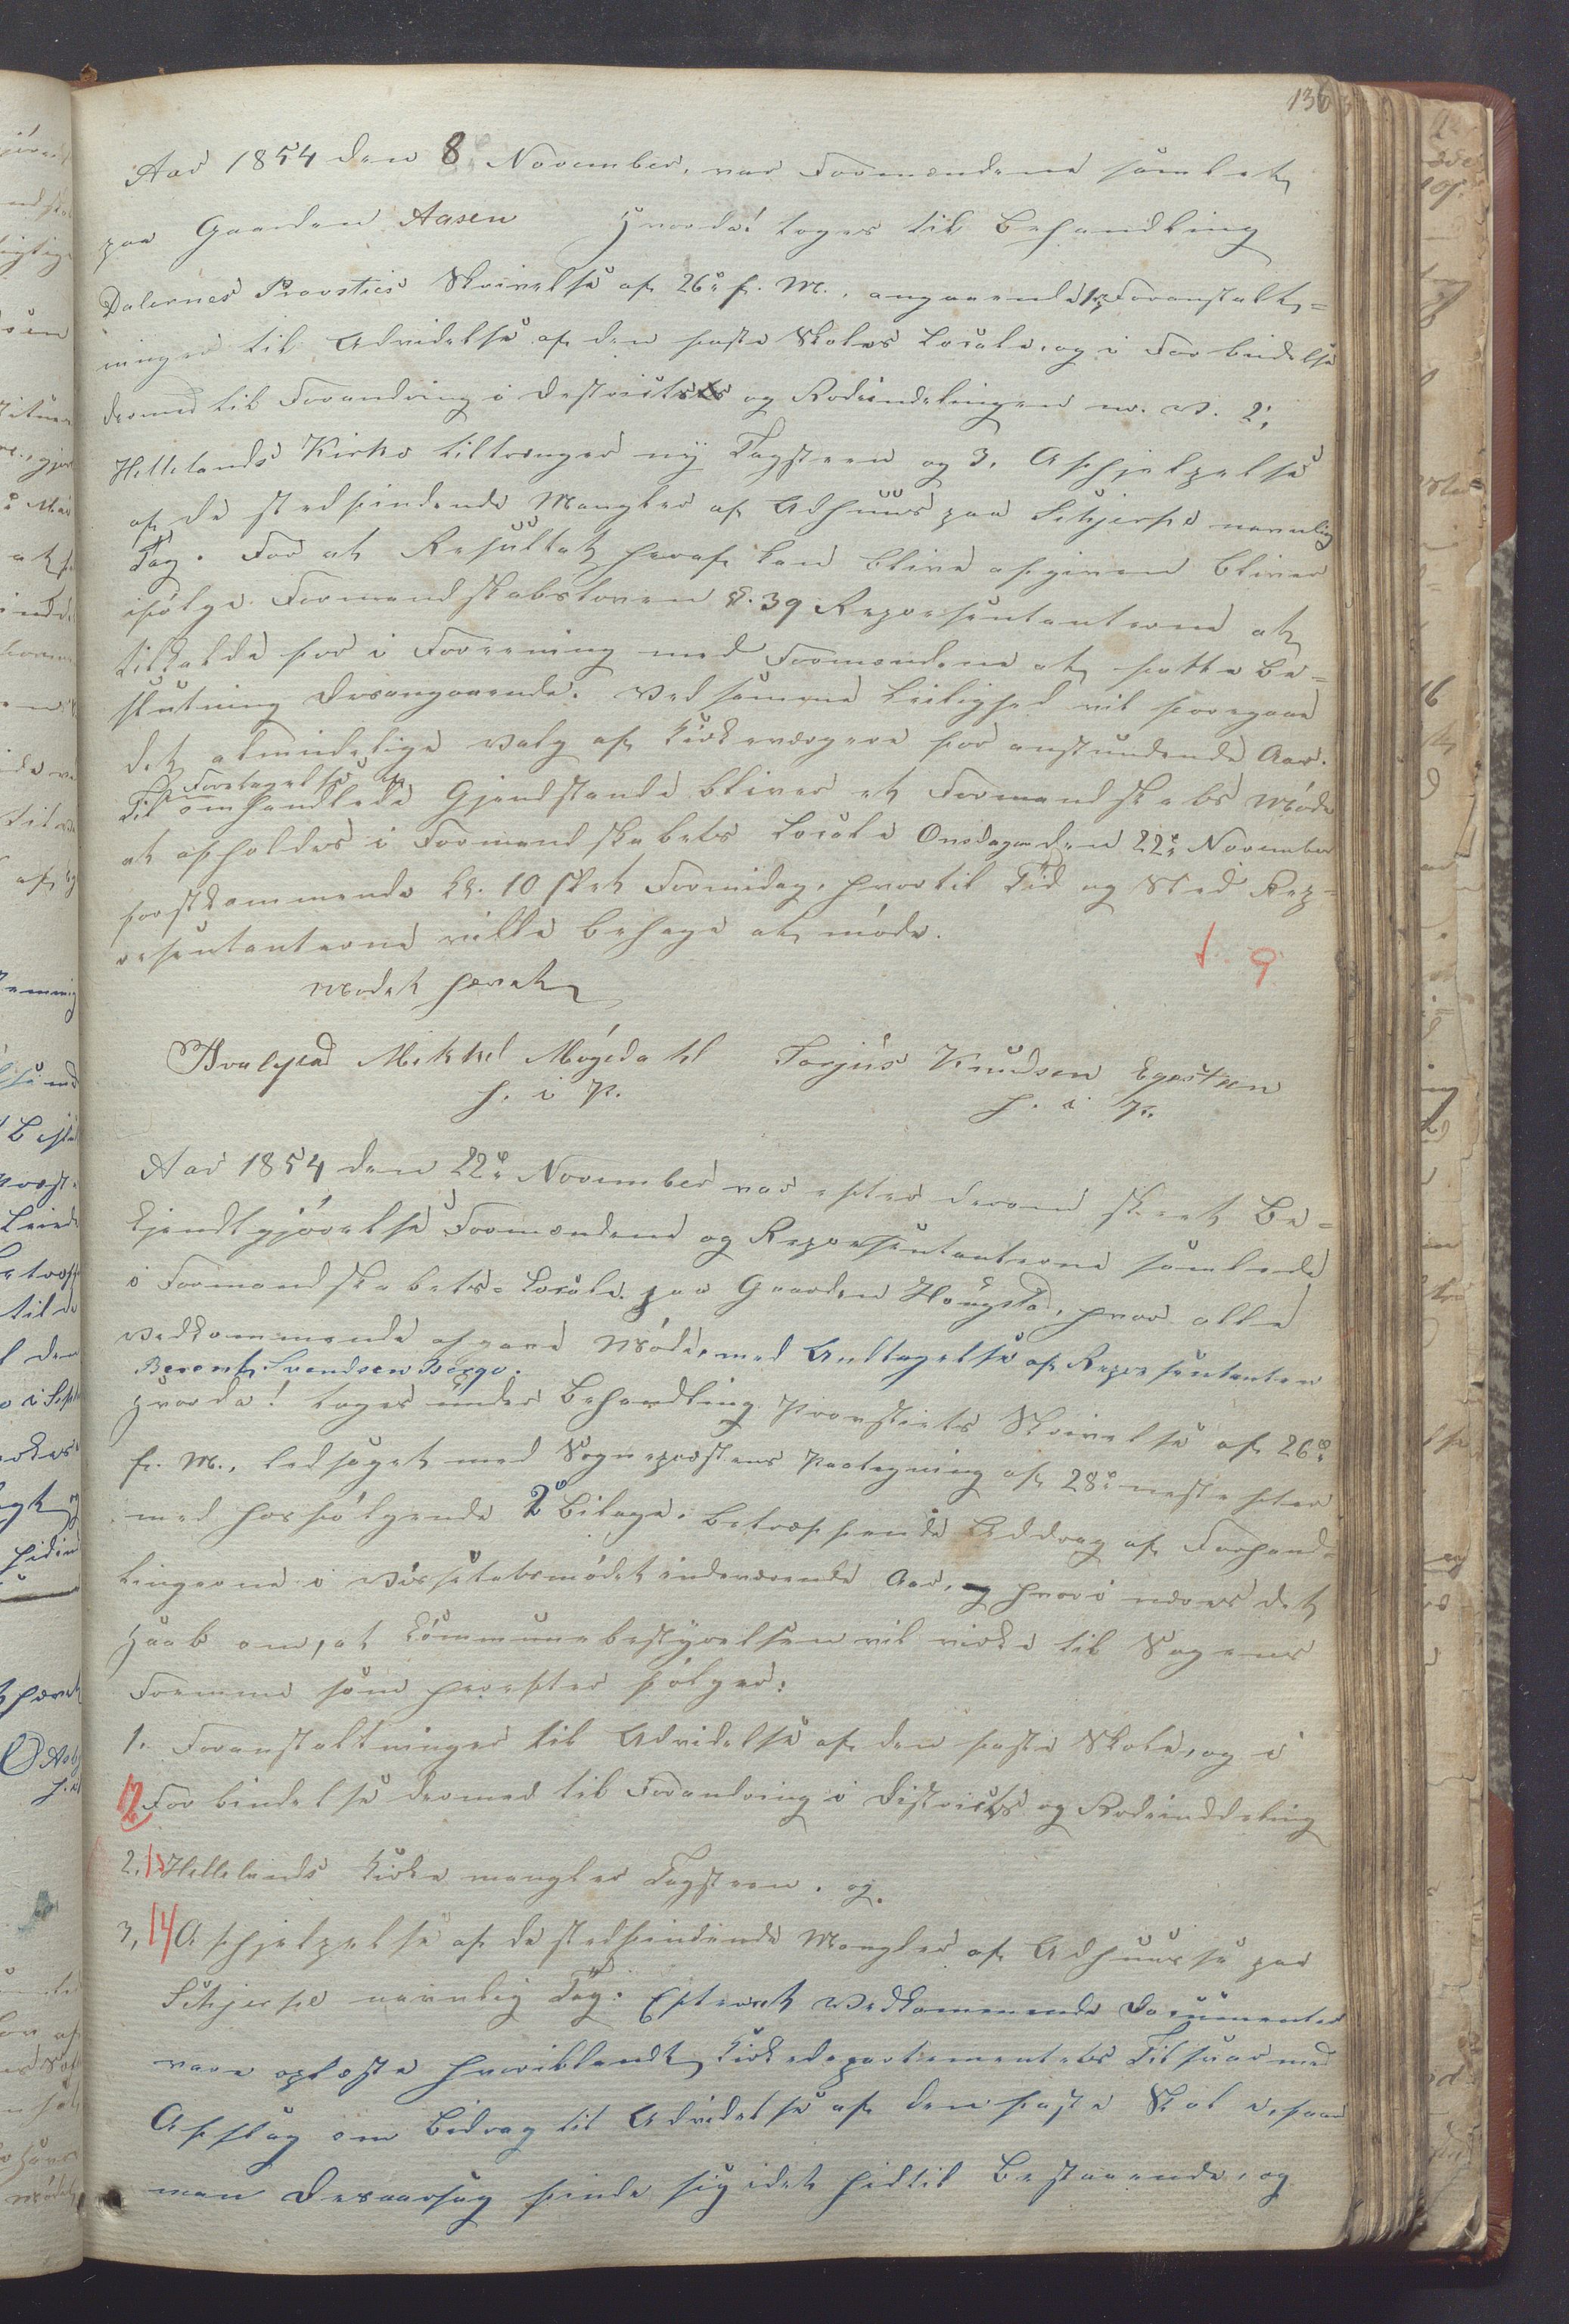 136
Aar 1854 den 8de November, var Formændene samlet
paa Gaarden Aasen Hvorda! toges til Behandling
Dalernes Provsties Skrivelse af 26de f. M., angaaende 1, Foranstalt=
ninger til Udvidelse af den faste Skoles Locale, og i Forbindelse
dermed til Forandring i Destricts og Rodeindelingen m. v. 2,
Hellelands Kirke tiltrenger ny Tagsteen og 3. Afhjelpelse
af de stedfindende Mangler af Udhuus paa Schjerpe navnlig
Tag. For at Resultat heraf kan blive afgiven bliver
ifølge Formandskabsloven §. 39 Repræsentanterne at
tilkalde for i Forening med Formændene at fatte Be=
slutning desangaaende. Ved samme Leilighed vil foregaae
det almindelige Valg af Kirkeværgere for anstundende Aar.
Til Foretagelse af
omhandlede Gjendstande bliver et Formandskabs Møde
at afholdes i Formandskabets Locale Onsdagen den 22de November
førstkommende Kl. 10 slet Formidag, hvortil Tid og Sted Rep=
resentanterne ville behage at møde.
d. 9
Mødet hævet
Mikkel Møgedahl Torjus Knudsen Egesteen
h. i P. h. i P.
Aar 1854 den 22de November var efter derom skeet Be=
kjendtgjørelse Formændene og Representanterne samlede
i Formandskabets Locale paa Gaarden Høugsta, hvor alle
Vedkommende afgave Møde, med Undtagelse af Repræsentanten
Berent Svendsen Berge.
Hvorda! toges under Behandling Provstiets Skrivelse af 26de
f. M., ledsaget med Sognepræstens Paategning af 28de næstefter
med hosfølgende 2de Bilage, betræffende Uddrag af Forhand=
lingerne i Visitatsmødet indeværende Aar, og hvori næres det
Haab om, at Kommunebestyrelsen vil virke til Sagens
Fremme som herefter følger:
1. Foranstaltninger til Udvidelse af den faste Skole, og i
12 Forbindelse dermed til Forandring i Districts og Rodeinddeling
2. 13 Hellelands Kirke mangler Tagsteen. og
3, 14 Afhjelpelse af de stedfindende Mangler af Udhuusse paa
Schjerpe navnlig Tag. Efterat Vedkommende Documenter
vare oplæste hvoriblandt Kirkedepartementets Tilsvar med
Afslag om Bidrag til Udvidelse af den faste Skole, saa
man Desaarsag finde sig i det hidtil Bestaaende, og